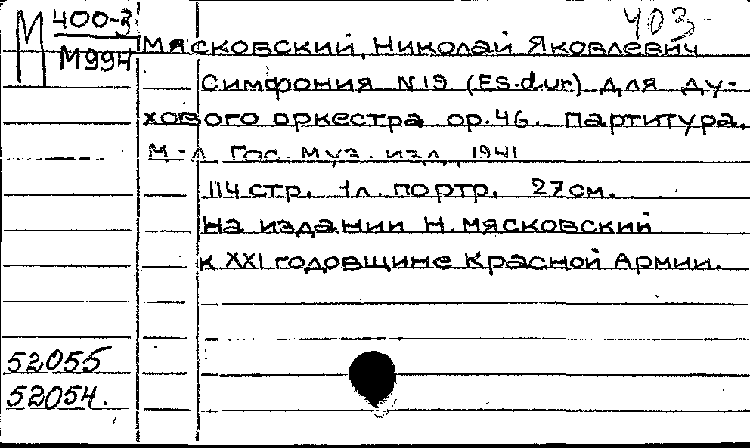 М 400-3
М994
403
Мясковский, Николай Яковлевич
Симфония N19 (Es-dur) для ду-
хового оркестра ор.46. Партитура.
М-Л. Гос. муз. изд., 1941
114 стр. 1л. портр. 27см.
На издании Н. Мясковский
к XXI годовщине Красной Армии.
52055
52054.